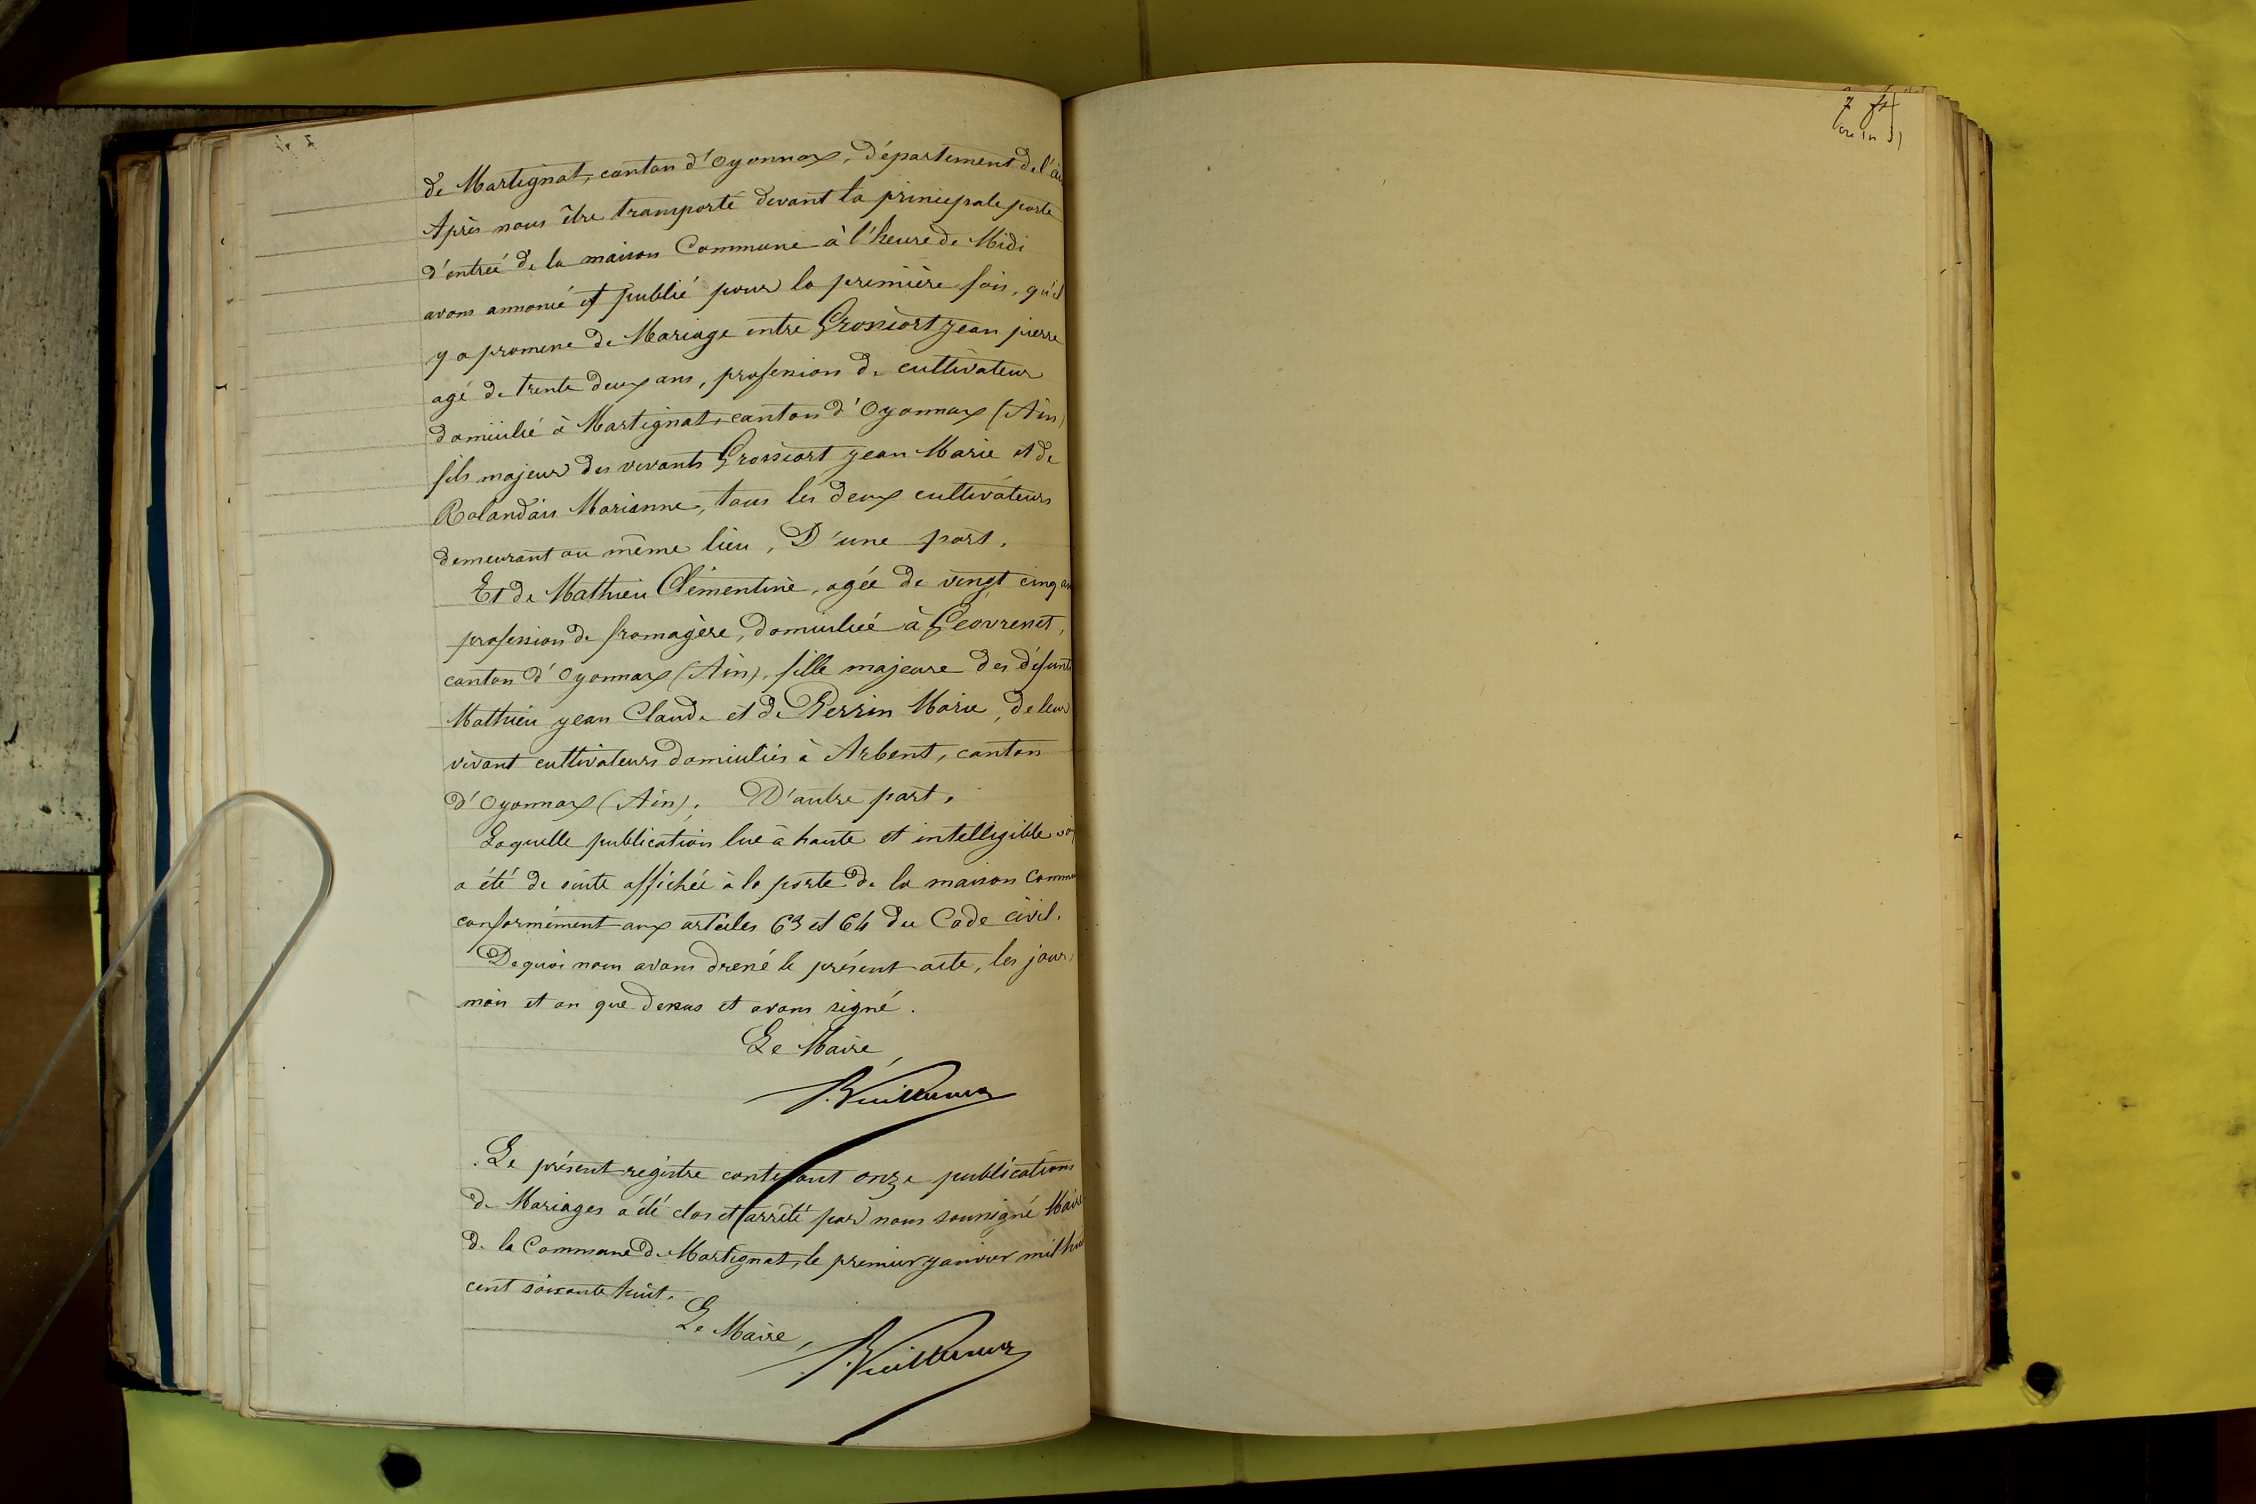 de Martignat, canton d'Oyonnax, département de l'ai
Après nous être transporté devant la principale porte
d'entreé de la maison Commune à l'heure de Midi
avons annoncé et publié pour la première fois, qu'il
y a promesse de Mariage entre Grossiort jean pierre
agé de trente deux ans, profession de cultivateur
domicilié à Martignat, canton d'Oyonnax (Ain)
fils majeur des vivants Grossiort jean Marie et de
Rolandais Marianne, tous les deux cultivateurs
demeurant au même lieu, D'une part.
Et de Mathieu Clémentine, agée de vingt cinq an
profession de fromagère, domiciliée à Géovresset,
canton d'Oyonnax (Ain), fille majeure des défunts
Mathieu jean Claude et de Perrin Marie, de leur
vivant cultivateurs domiciliés à Arbent, canton
d'Oyonnax (Ain). D'autre part.
Laquelle publication lue à haute et intelligible voi
a été de suite affichée à la porte de la maison Commu
conformément aux articles 63 et 64 du Code civil.
De quoi nous avons dressé le présent acte, les jour,
mois et an que dessus et avons signé.
Le Maire,
Le présent registre contenant onze publications
de Mariages a été clos et arrêté par nous soussigné Maire
de la Commune de Martignat, le premier janvier mil hui
cent soixante huit.
Le Maire,